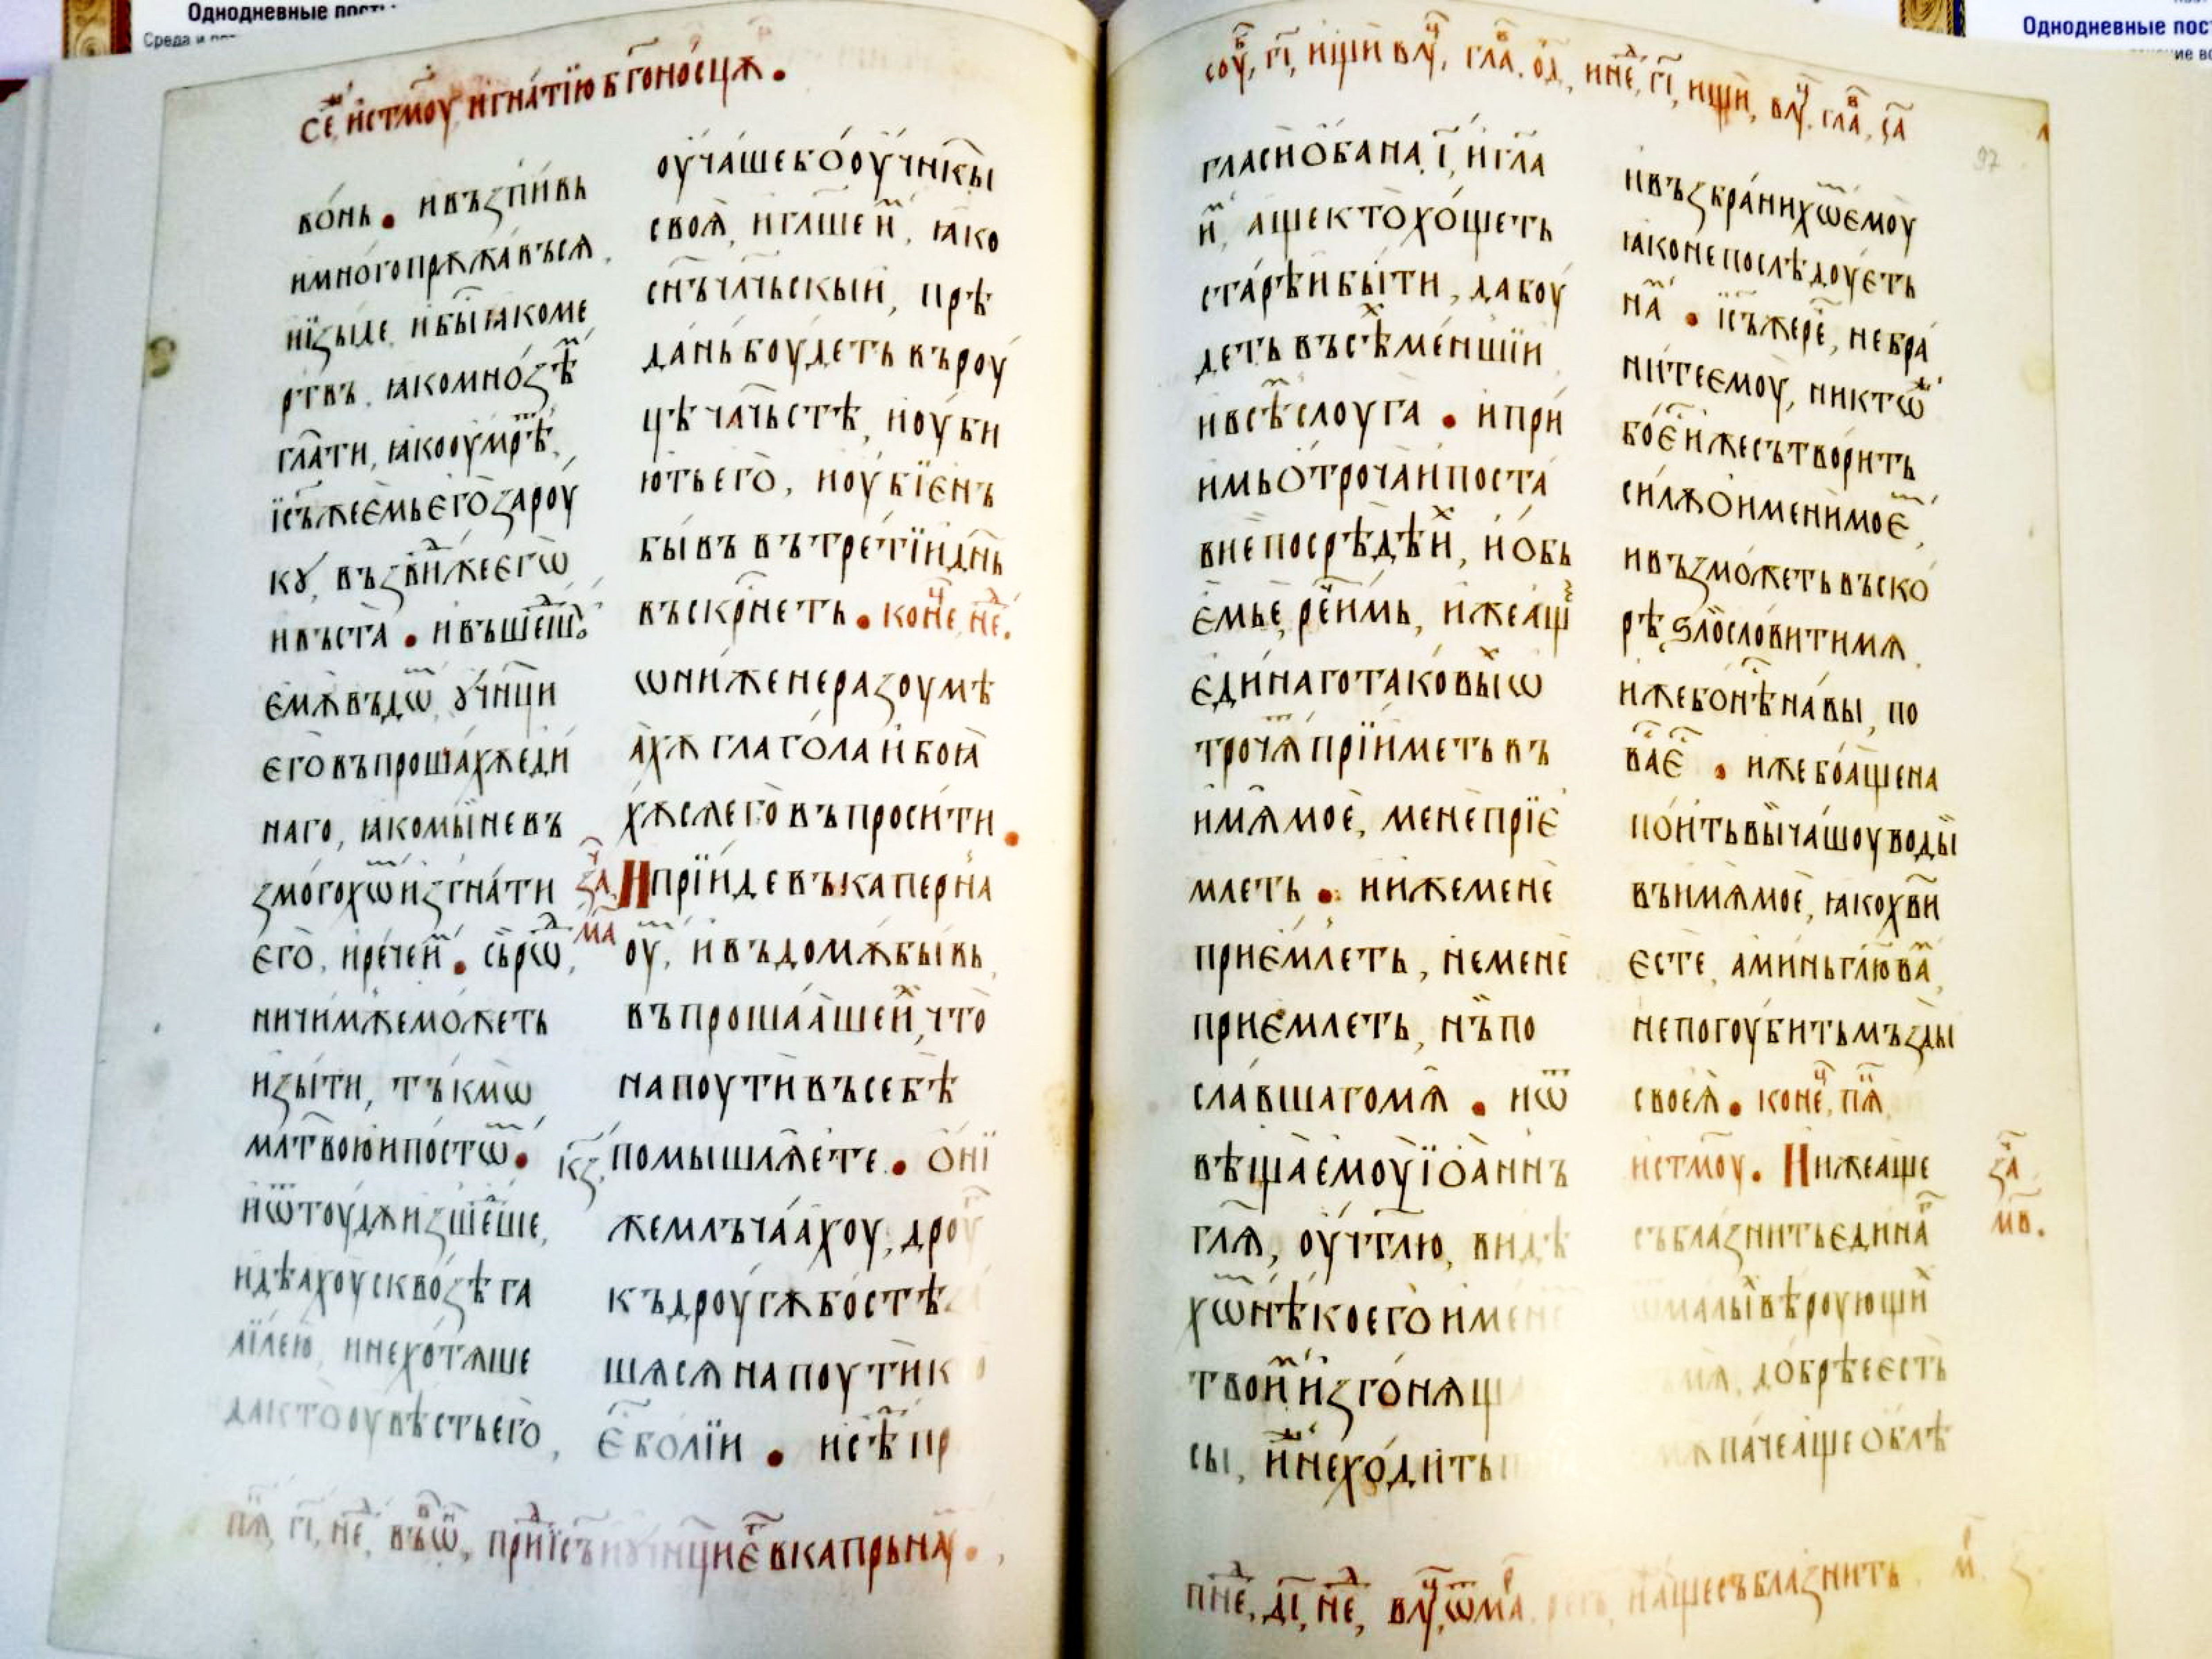 Однодневные
Среда и
Се́ и҆ст҃мⷹоу҆ и҆гна́тїю б҃гоно́сцѫ.
во́нь. и въꙁпи́вь
и мно́го прѫжа́въсѧ,
и҆ꙁы́де, и бы̑ ꙗко ме
ртвъ, ꙗко мно́ꙁѣⷨ
гл҃ати, ꙗко оу҆мрѣ́ⷮ,
і҆с҃ъ же є҆мь є҆го̀ ꙁа роу́
кꙋ, въꙁдви́же є҆го̀
и въста̀. и въше́шⷣꙋ
є҆мꙋ въ дѡⷨ, ᲂу҆ч҃нци
є҆го̀ въпроша́хѫ є҆ди
наго, ꙗко мы̀ не въ
ꙁмо́гохѡⷨ и҆ꙁгна́ти
є҆го̀. и рече́ и҆ⷨ. съ́ рѡⷣ,
ничи́мже мо́жеть
и҆ꙁы́ти, тъ́кмѡ
мл҃твою и по́стѡⷨ.
и ѿтоу́дѫ и҆ꙁше́ⷣше,
идѣа́хоу сквоꙁѣ́ га
лїле́ю, и не хотѧ́ше
да кто̀ оу҆вѣ́сть є҆го̀,
оу҆ча́ше бо̀ оу҆ч҃нкы̀
своѧ̀, и гл҃аше и҆ⷨ, ꙗко
сн҃ъ чл҃чьскыи, прѣ
да́нь боу́деть въ роу́
цѣ чл҃чьстѣ, и оу҆би
ють є҆го̀, и оу҆бїє́нъ
бы́въ въ тре́тїи дн҃ь
въскрⷭ҇неть. коне́ⷰ, неⷣ.
ѡни́ же не раꙁоумѣ
а́хѫ глаго́ла и боꙗ
хѫсѧ є҆го̀ въпроси́ти.
ꙁа҃ⷱ И прїи́де въ каперна
ма оу́ⷨ, и въ домꙋ̀ бы́вь,
въпроша́аше иⷯ, что̀
на поутѝ въ себѣ̀
к҃ꙁ помышлѧ́ете. о҆ни́
же млъча́ахоу, дроу́ⷢ
къ дроу́гѫ бо стѣꙁа́
шѧсѧ на поутѝ к
є҆ⷭ҇ бо́лїи. и сѣⷣ пр
пѧ҃ⷦ, г҃і, не҃ⷣ, въ ѡⷩ҇, прїи́ⷣ і҆с҃ъ и ᲂу҆ч҃нци є҆гⷪ в капрьнаꙋⷨ.
Однодневные пос
соуⷠ, г҃і, ищѝ в лꙋⷱ, глаⷡ, о҃д, и неⷣ, г҃і, ищѝ, в лꙋⷱ, глаⷡ, ѕ҃а
97
гласи о҆ба на і҃ⷮ, и гл҃а
и҆ⷨ, аще кто̀ хо́щеть
старѣи бы́ти, да боу́
деть въсѣⷯ ме́ншїи
и всѣⷨ слоуга. и при
имь отроча̀ и поста
ви є посрѣдѣ̀ иⷯ, и о҆бь
є҆мь є, ре́ и҆мь, иже а́ще
є҆ди́наго таковы́ⷯ ѡ
трочѧⷮ прїи́меть въ
имѧ̀ моѐ, менѐ прїе́
млеть. и иже менѐ
прие́млеть, не менѐ
прие́млеть, нъ̀ по
сла́вшаго мѧ̀. и ѿ
вѣща̀ є҆моу̀ і҆ѡа́ннъ
гл҃ѧ, оу҆чт҃лю, видѣ
хѡⷨ нѣ́коего име
твои́ⷨ и҆ꙁго́нѧщ
сы, и҆ не хо́дить
и въꙁбра́нихѡⷨ є҆моу̀
ꙗко не послѣ́доуеть
наⷨ. і҆с҃ъ же рече̑, не бра
ни́те є҆моу̀, никтѡⷤ
бо є҆ⷭ҇ иже сътво́рить
си́лѫ о҆ имени мое́ⷨ,
и въꙁмо́жеть въско́
рѣ ꙁлосло́вити мѧ.
иже бо нѣⷭ҇ на вы̀, по
ваⷭ҇ є҆ⷭ҇. иже бо аще на
пои́ть вы̀ ча́шоу воды̀
въ имѧ̀ моѐ, ꙗко хв҃и
есте, аминь гл҃ю ваⷨ,
не погоу́бить мъꙁды
своеѧ̀. коне́ⷰ, пѧⷦ
и҆ст҃мⷹоу. И иже аще ꙁа҃ⷱ
събла́ꙁнить є҆дина́ⷢ м҃в.
малы́ⷯ вѣроующи́ⷯ
мѧ, добрѣе є́сть
паче аще о҆блѣ
пнеⷣ, д҃і, неⷣ, в лꙋⷱ, ѿ маⷬ, рече гь, и аще съблаꙁнить